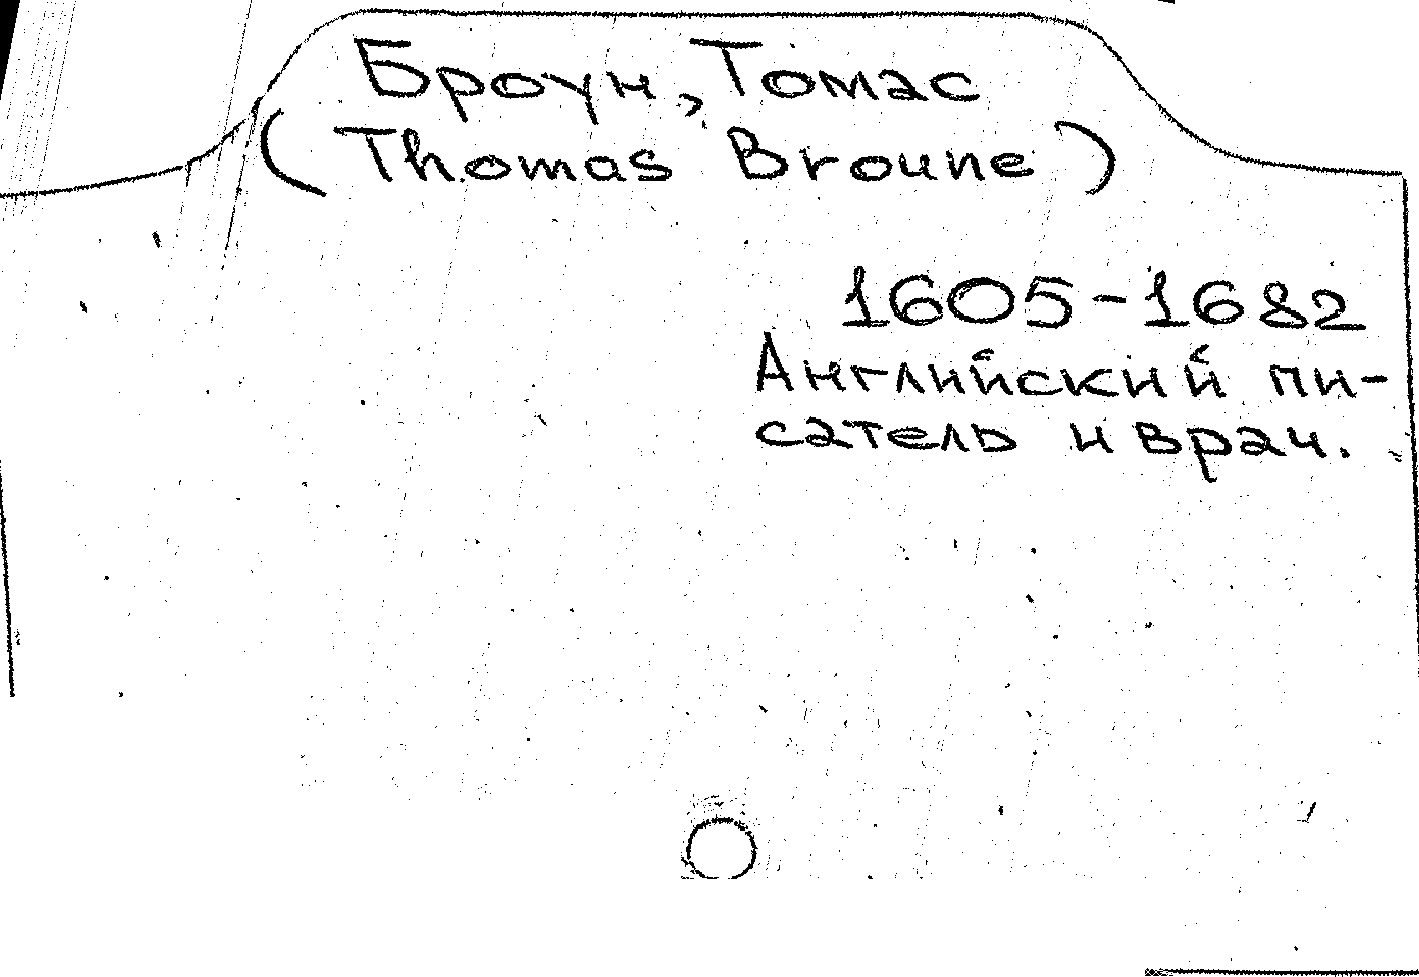 Броун, Томас
(Thomas Broune)
1605-1682
Английский пи-
сатель и врач.